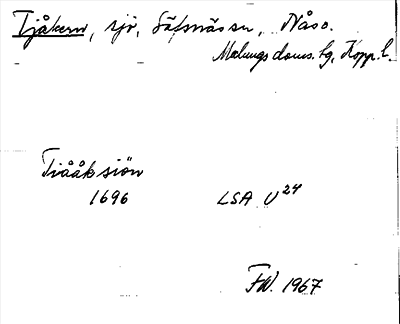 Tjåkern, sjö, Säfsnäs sn, Nåso.
Malungs doms. tg, Kopp. l.
Tiååk siön
1696 LSA U24
F.W. 1967